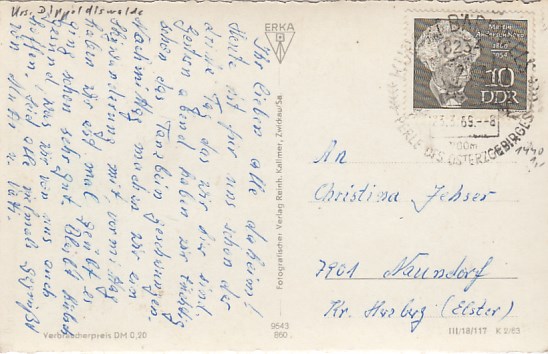 Krs. Dippoldiswalde
Ihr Lieben alle daheim!
Heute ist für uns schon der
dritte Tag, das wir hier sind.
Gestern abend haben wir tüchtig
schon das Tanzbein geschwungen.
Nachmittag machen wir ein
Wanderung mit, vom Berg
haben wir erst mal
ging schon sehr gut. Bleibt schön
gesund, was wir von uns auch
hoffen, seid alle vielmals gegrüßt
von
ERKA
Fotografischer Verlag Reinh. Kallmer, Zwickau/Sa.
Martin
Andersen Nexö
1869
10
DDR
8232
23.3.69.--8
PERLE DES OSTERZGEBIRGES
An
Christina Jehser
7901 Naundorf
Kr. Herzberg (Elster)
Verbraucherpreis DM 0,20
9643
860
III/18/117 K 2/63